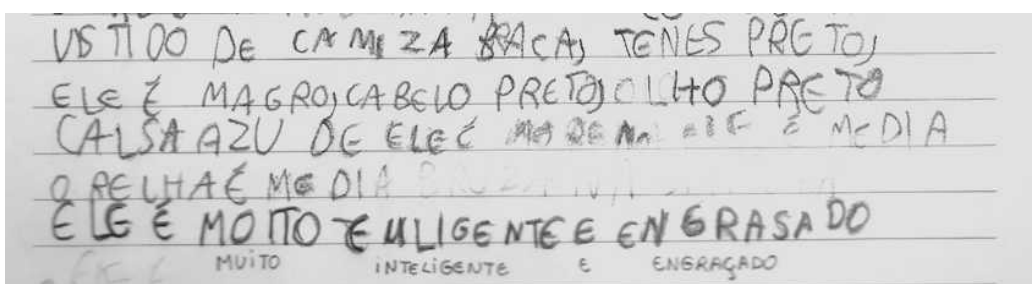 VSTIDO DE CAMIZA BRACA, TENES PRETO,
ELE É MAGRO, CABELO PRETO, OLHO PRETO
CALSA AZU DE ELE É MORENA ELE É MEDIA
O RELHA É MEDIA
ELE É MOITO E ULIGENTE E ENGRASADO
MUITO INTELIGENTE E ENGRAÇADO